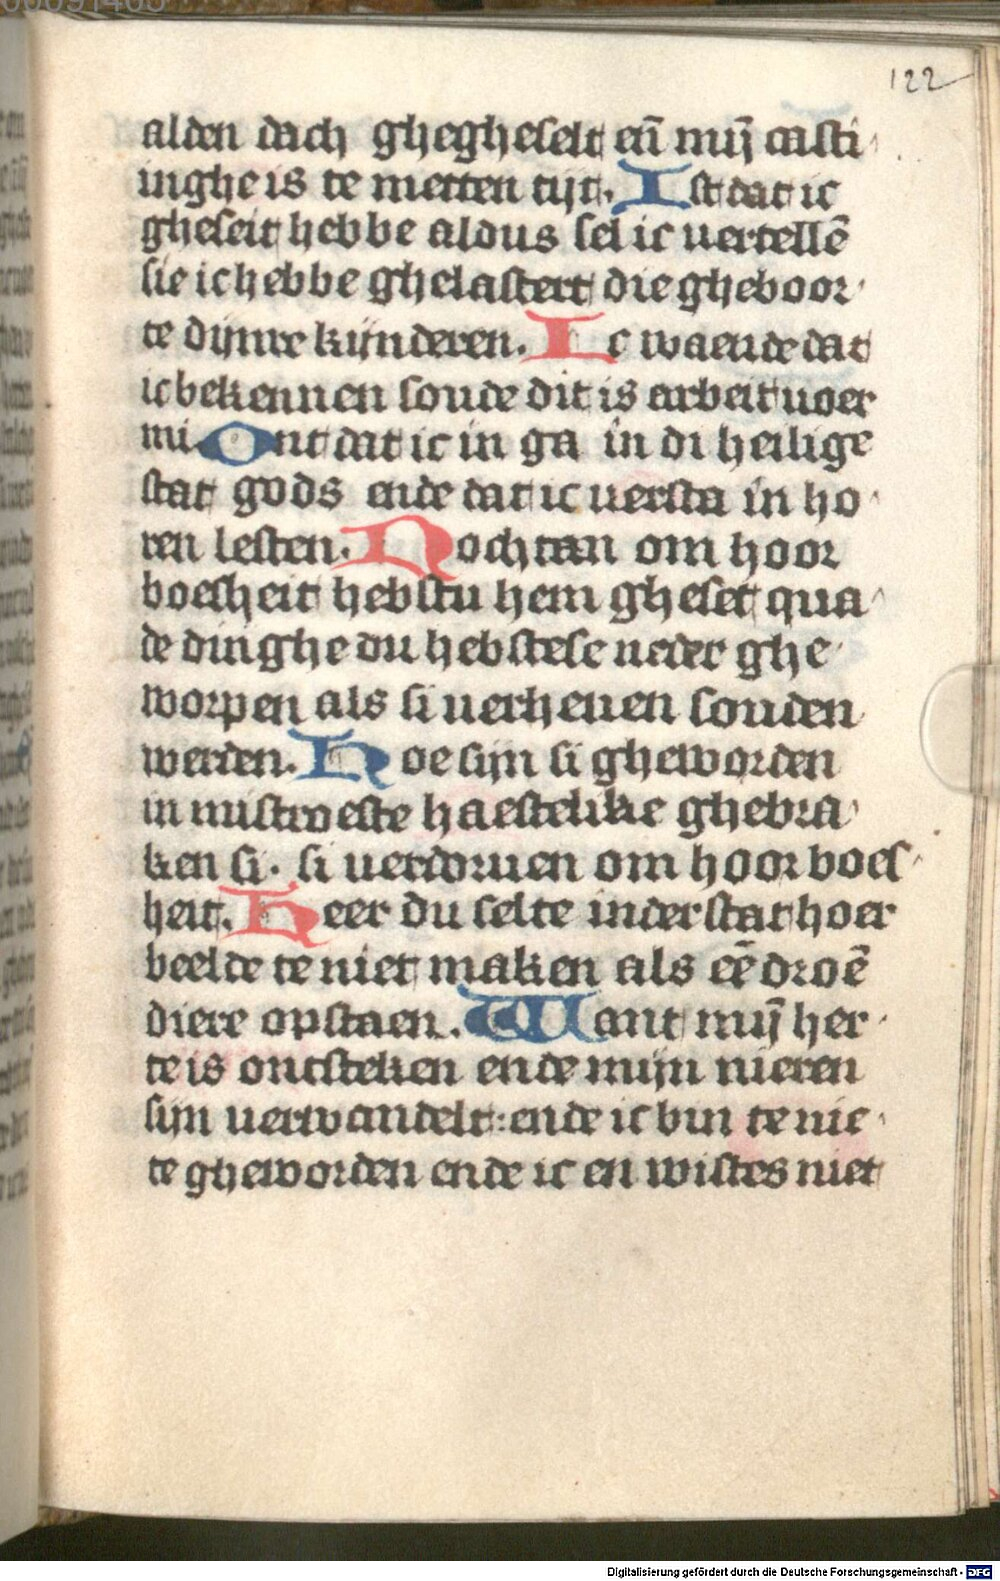 122
alden dach ghegheselt en̄ mij̄ casti
inghe is te metten tijt. Ist dat ic
gheseit hebbe aldus sel ic uertellē
sie ic hebbe ghelastert die gheboor
te dijnre kijnderen. Ic waende dat
ic bekennen soude dit is arbeit uoer
mi. Ont dat ic in ga in di heilige
stat gods ende dat ic uersta in ho
ren lesten. Nochtan om hoor
boesheit hebstu hem gheset qua
de dinghe du hebstese neder ghe
worpen als si uerheuen souden
werden. Hoe sijn si gheworden
in mistroeste haestelike ghebra
ken si. si uerdoruen om hoor boes
heit. Heer du selte in der stat hoer
beelde te niet maken als eē droē
diere opstaen. Want mij̄ her
te is ontsteken ende mijn nieren
sijn uerwandelt: ende ic bin te nie
te gheworden ende ic en wistes niet
Digitalisierung gefördert durch die Deutsche Forschungsgemeinschaft - DFG